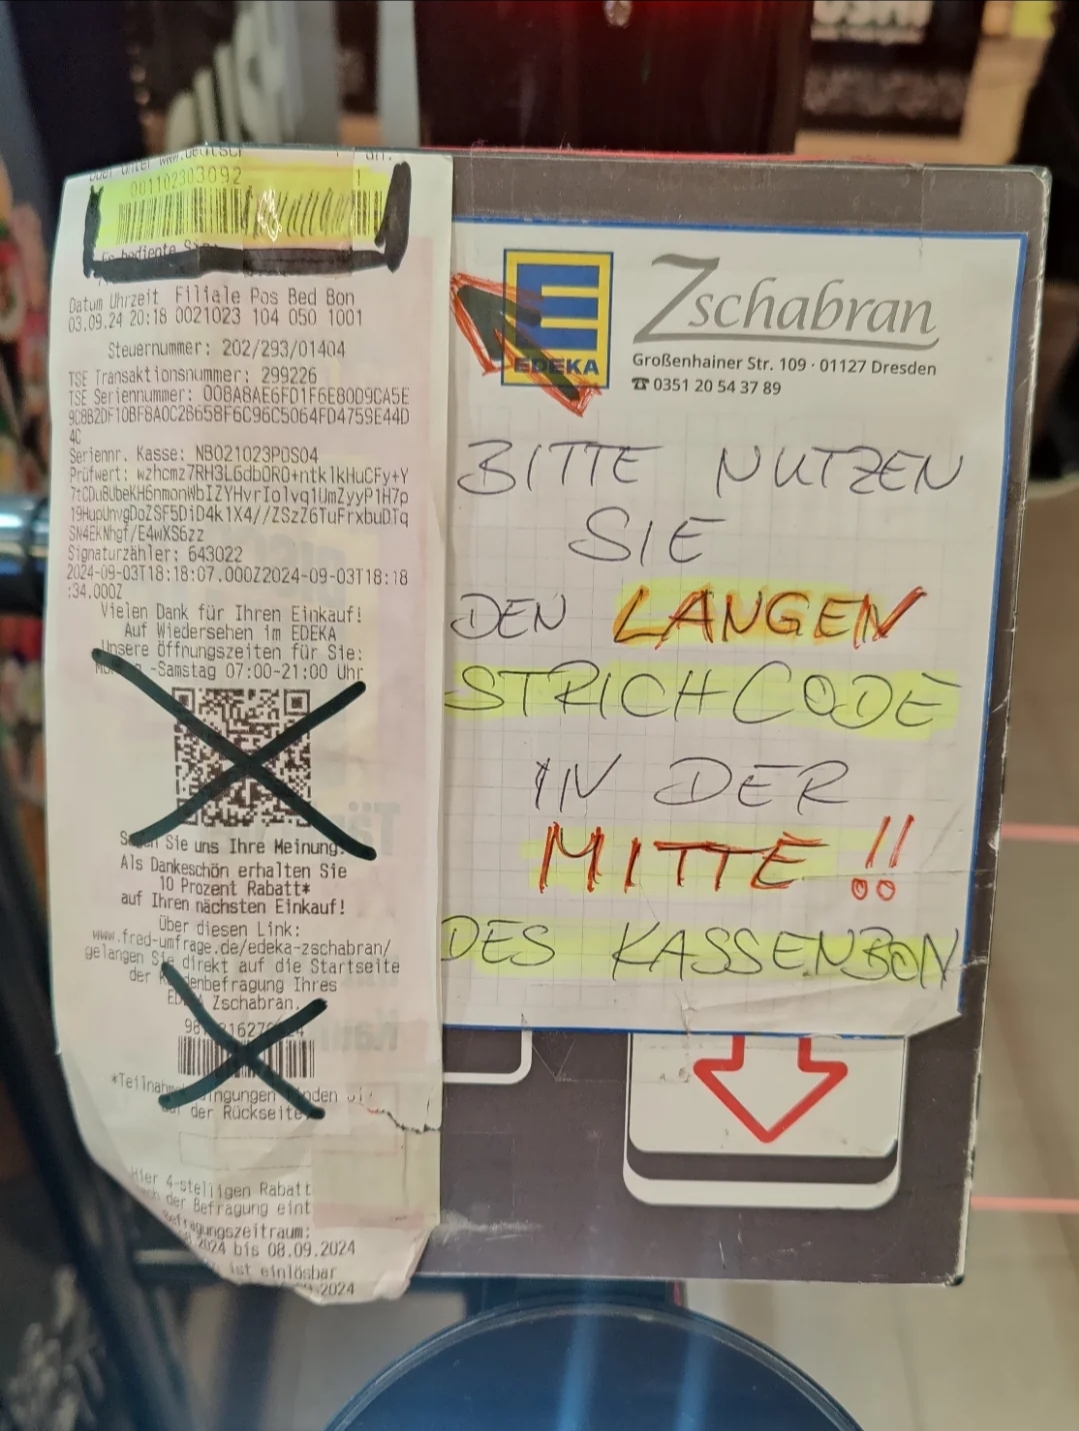 001102303092 1
Es bediente Sie
Datum Uhrzeit Filiale Pos Bed Bon
03.09.24 20:18 0021023 104 050 1001
Steuernummer: 202/293/01404
TSE Transaktionsnummer: 299226
TSE Seriennummer: 008A8AE6FD1F6E80D9CA5E
9C8B2DF10BF8A0C2B658F6C96C5064FD4759E44D
4C
Seriennr. Kasse: NB021023POS04
Prüfwert:
Signaturzähler: 643022
2024-09-03T18:18:07.000Z2024-09-03T18:18
:34.000Z
Vielen Dank für Ihren Einkauf!
Auf Wiedersehen im EDEKA
Unsere Öffnungszeiten für Sie:
-Samstag 07:00-21:00 Uhr
Sie uns Ihre Meinung.
Als Dankeschön erhalten Sie
10 Prozent Rabatt*
auf Ihren nächsten Einkauf!
Über diesen Link:
www.fred-umfrage.de/edeka-zschabran/
gelangen Sie direkt auf die Startseite
der Kundenbefragung Ihres
EDEKA Zschabran.
*Teilnahmebedingungen finden Sie
auf der Rückseite
Hier 4-stelligen Rabatt
nach der Befragung eint
Befragungszeitraum:
2024 bis 08.09.2024
ist einlösbar
2024
EDEKA
Zschabran
Großenhainer Str. 109 · 01127 Dresden
☎ 0351 20 54 37 89
BITTE NUTZEN
SIE
DEN LANGEN
STRICHCODE
IN DER
MITTE!!
DES KASSENBON